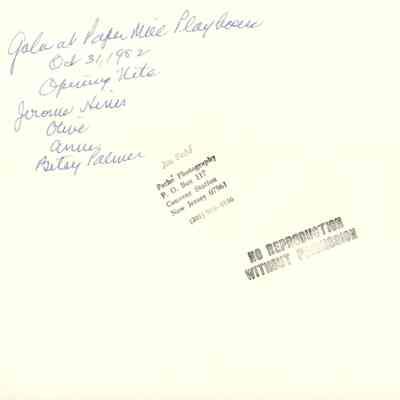 Gala at Paper Mill Playhouse
Oct 31, 1982
Opening Nite
Jerome Hines
Olive
Annis
Betsy Palmer
Jim
Pathe' Photography
P. O. Box 117
Convent Station
New Jersey 07961
(201)
NO REPRODUCTION
WITHOUT PERMISSION